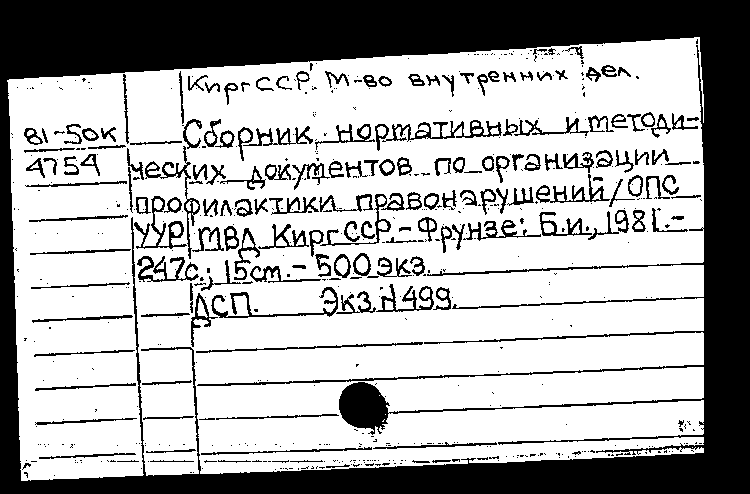 КиргССР. М-во внутренних дел.
81-50к
4754
Сборник нормативных и методи-
ческих документов по организации
профилактики правонарушений/ОПС
УУР МВД КиргССР.- Фрунзе: Б.и., 1981.-
247с.; 15см.- 500экз.
ДСП. Экз.N499.